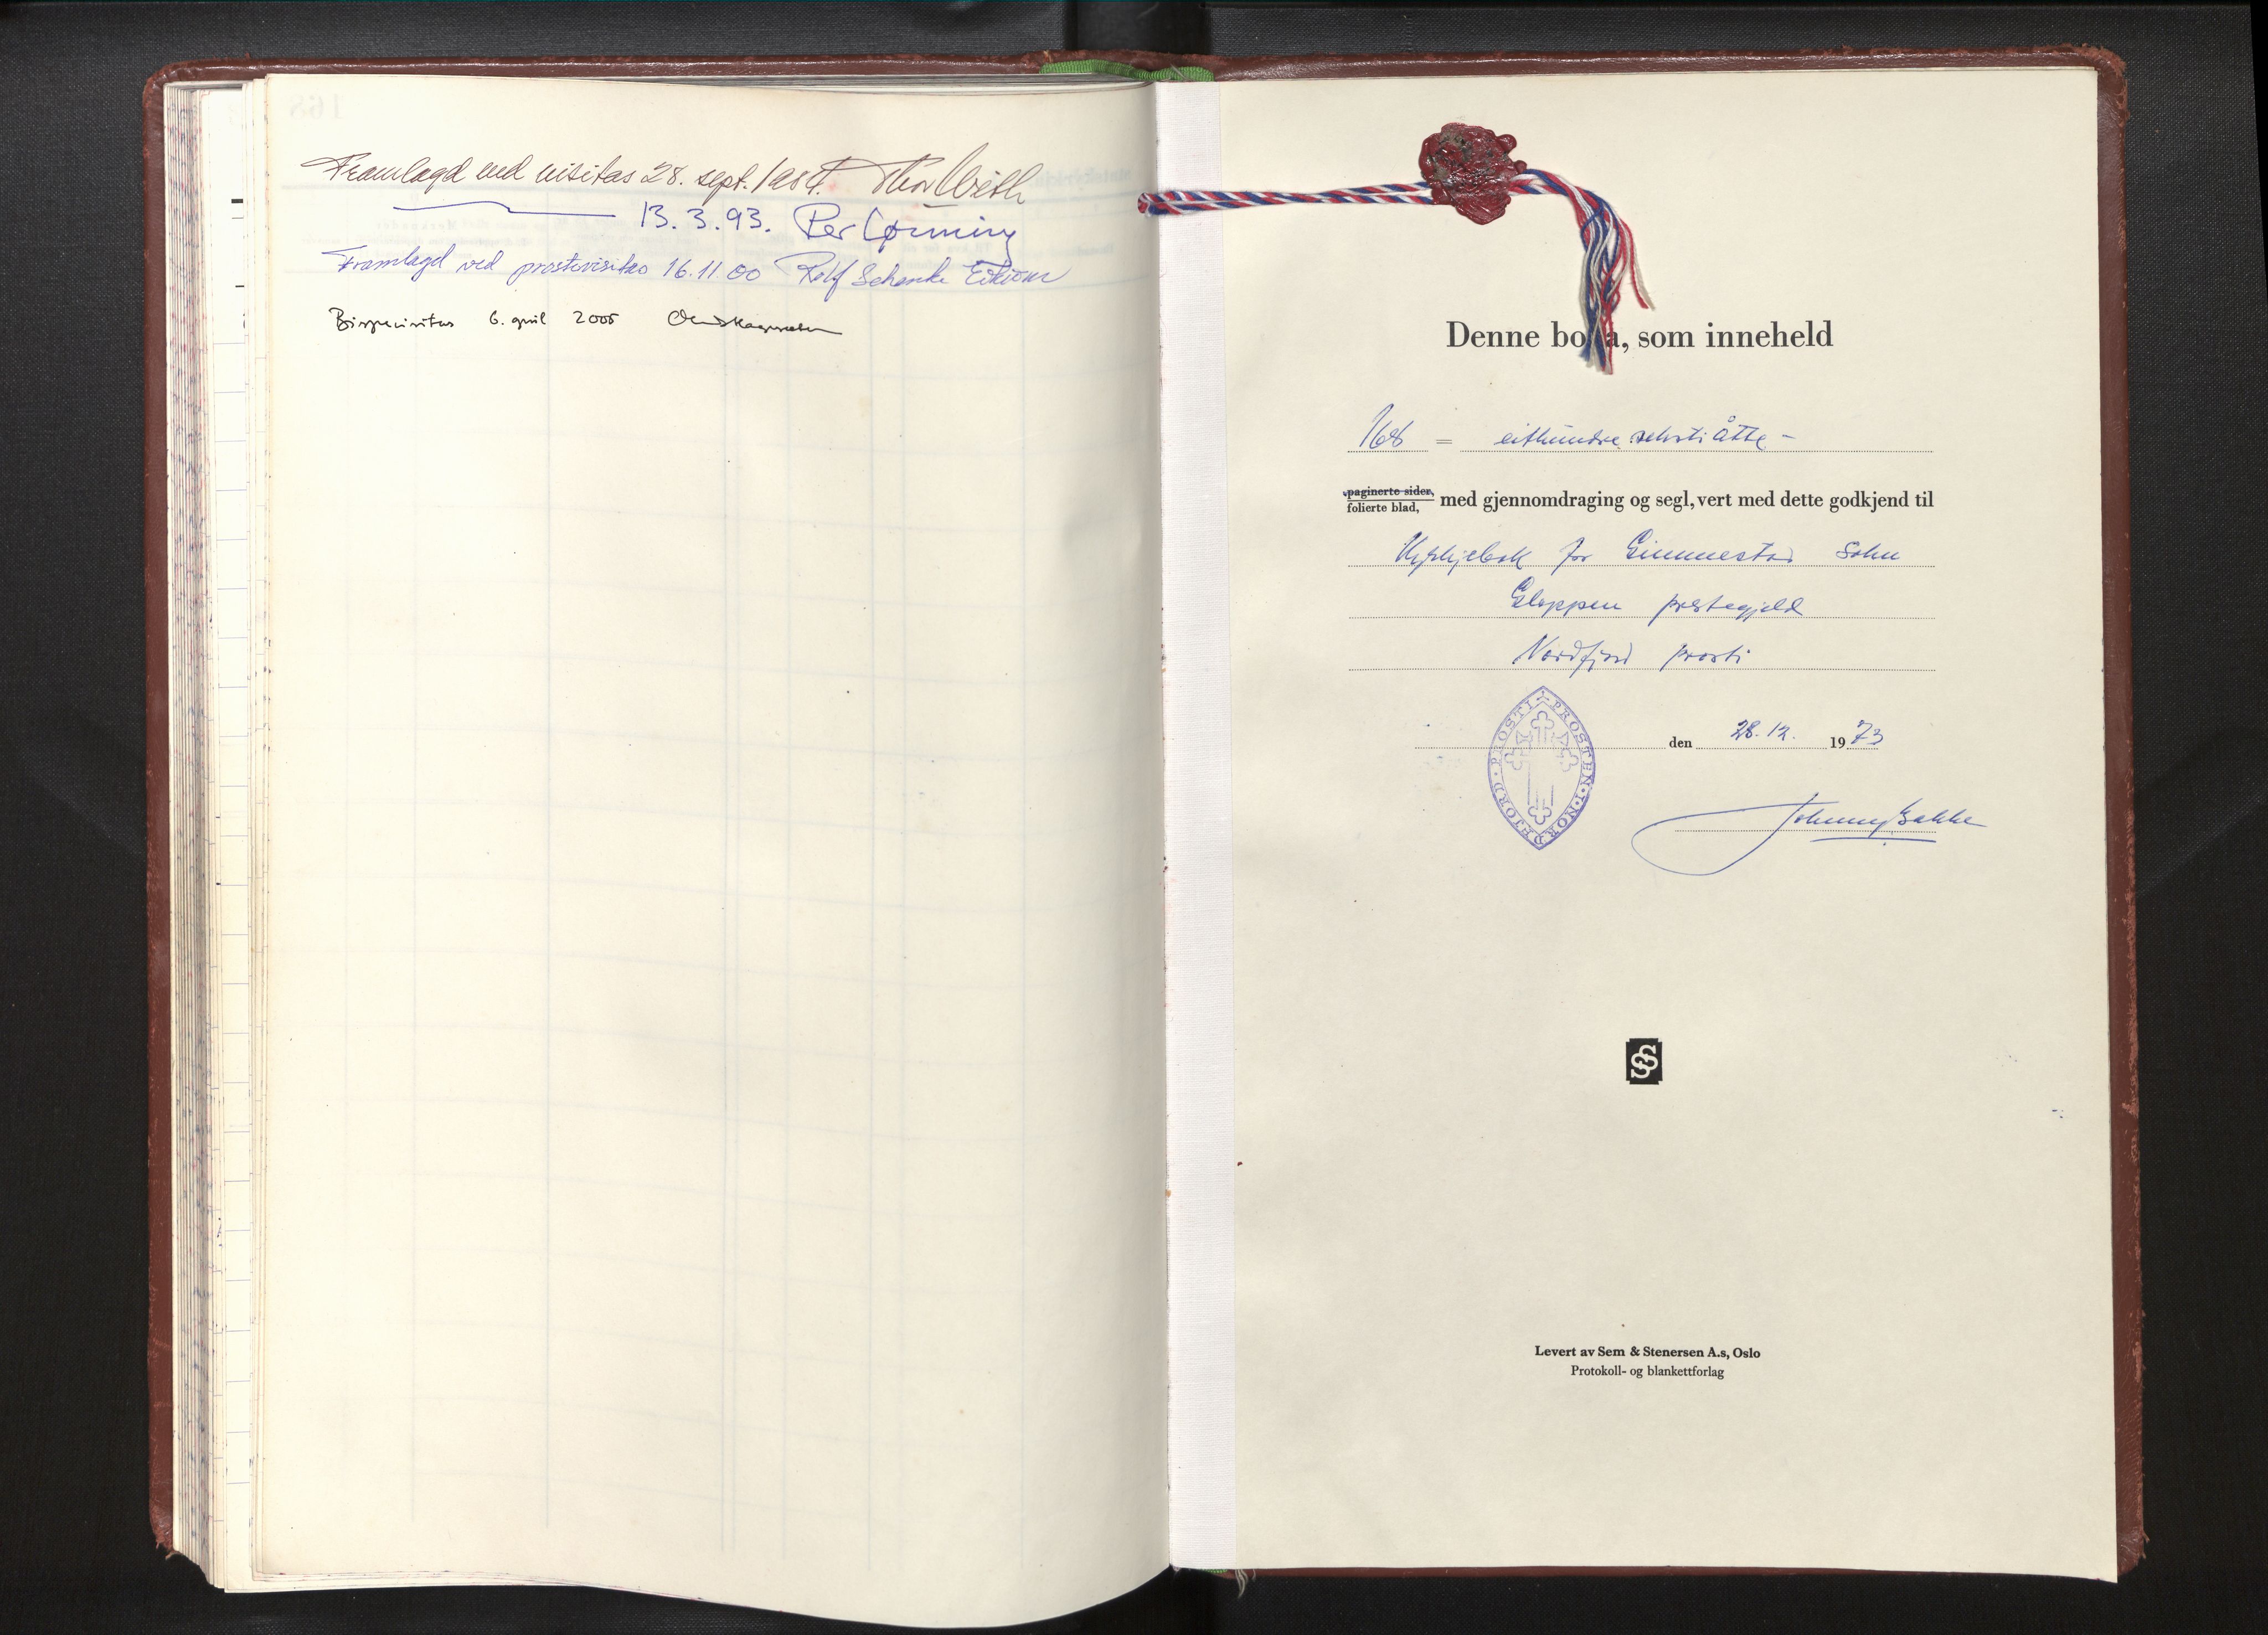 Framlagd ved visitas 28. sept. 1984. Thor With
13.3.93. Per Lønning
Framlagd ved prostevisitas 16.11 00 Rolf Schanke Eikum
Bispevisitas 6. april 2005
Denne boka, som inneheld
168 = eithundre sekstiåtte -
paginerte sider,
folierte blad,
med gjennomdraging og segl, vert med dette godkjend til
Kyrkjebok for Gimmestad Sokn
Gloppen prestegjeld
Nordfjord prosti
den 28.12. 1973
PROSTEN I NORDFJORD PROSTI
Johnny Bakke
SS
Levert av Sem & Stenersen A.s, Oslo
Protokoll- og blankettforlag